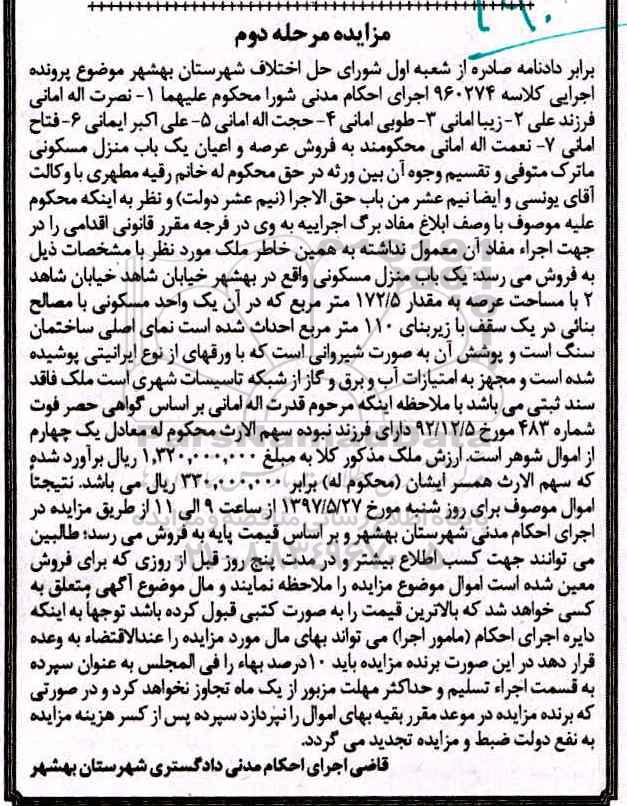 مزایده مرحله دوم
برابر دادنامه صادره از شعبه اول شورای حل اختلاف شهرستان بهشهر موضوع پرونده
اجرایی کلاسه ۹۶۰۲۷۴ اجرای احکام مدنی شورا محکوم علیهما ۱- نصرت اله امانی
فرزند علی ۲- زیبا امانی ۳- طوبی امانی ۴- حجت اله امانی ۵- علی اکبر ایمانی ۶- فتاح
امانی ۷- نعمت اله امانی محکومند به فروش عرصه و اعیان یک باب منزل مسکونی
ماترک متوفی و تقسیم وجوه آن بین ورثه در حق محکوم له خانم رقیه مطهری با وکالت
آقای یونسی و ایضا نیم عشر من باب حق الاجرا (نیم عشر دولت) و نظر به اینکه محکوم
علیه موصوف با وصف ابلاغ مفاد برگ اجراییه به وی در فرجه مقرر قانونی اقدامی را در
جهت اجراء مفاد آن معمول نداشته به همین خاطر ملک مورد نظر با مشخصات ذیل
به فروش می رسد: یک باب منزل مسکونی واقع در بهشهر خیابان شاهد خیابان شاهد
۲ با مساحت عرصه به مقدار ۱۷۲/۵ متر مربع که در آن یک واحد مسکونی با مصالح
بنائی در یک سقف با زیربنای ۱۱۰ متر مربع احداث شده است نمای اصلی ساختمان
سنگ است و پوشش آن به صورت شیروانی است که با ورقهای از نوع ایرانیتی پوشیده
شده است و مجهز به امتیازات آب و برق و گاز از شبکه تاسیسات شهری است ملک فاقد
سند ثبتی می باشد با ملاحظه اینکه مرحوم قدرت اله امانی بر اساس گواهی حصر فوت
شماره ۴۸۳ مورخ ۹۲/۱۲/۵ دارای فرزند نبوده سهم الارث محکوم له معادل یک چهارم
از اموال شوهر است. ارزش ملک مذکور کلا به مبلغ ۱,۳۲۰,۰۰۰,۰۰۰ ریال برآورد شده
که سهم الارث همسر ایشان (محکوم له) برابر ۳۳۰,۰۰۰,۰۰۰ ریال می باشد. نتیجتاً
اموال موصوف برای روز شنبه مورخ ۱۳۹۷/۵/۲۷ از ساعت ۹ الی ۱۱ از طریق مزایده در
اجرای احکام مدنی شهرستان بهشهر و بر اساس قیمت پایه به فروش می رسد؛ طالبین
می توانند جهت کسب اطلاع بیشتر و در مدت پنج روز قبل از روزی که برای فروش
معین شده است اموال موضوع مزایده را ملاحظه نمایند و مال موضوع آگهی متعلق به
کسی خواهد شد که بالاترین قیمت را به صورت کتبی قبول کرده باشد توجهاً به اینکه
دایره اجرای احکام (مامور اجرا) می تواند بهای مال مورد مزایده را عندالاقتضاء به وعده
قرار دهد در این صورت برنده مزایده باید ۱۰درصد بهاء را فی المجلس به عنوان سپرده
به قسمت اجراء تسلیم و حداکثر مهلت مزبور از یک ماه تجاوز نخواهد کرد و در صورتی
که برنده مزایده در موعد مقرر بقیه بهای اموال را نپردازد سپرده پس از کسر هزینه مزایده
به نفع دولت ضبط و مزایده تجدید می گردد.
قاضی اجرای احکام مدنی دادگستری شهرستان بهشهر